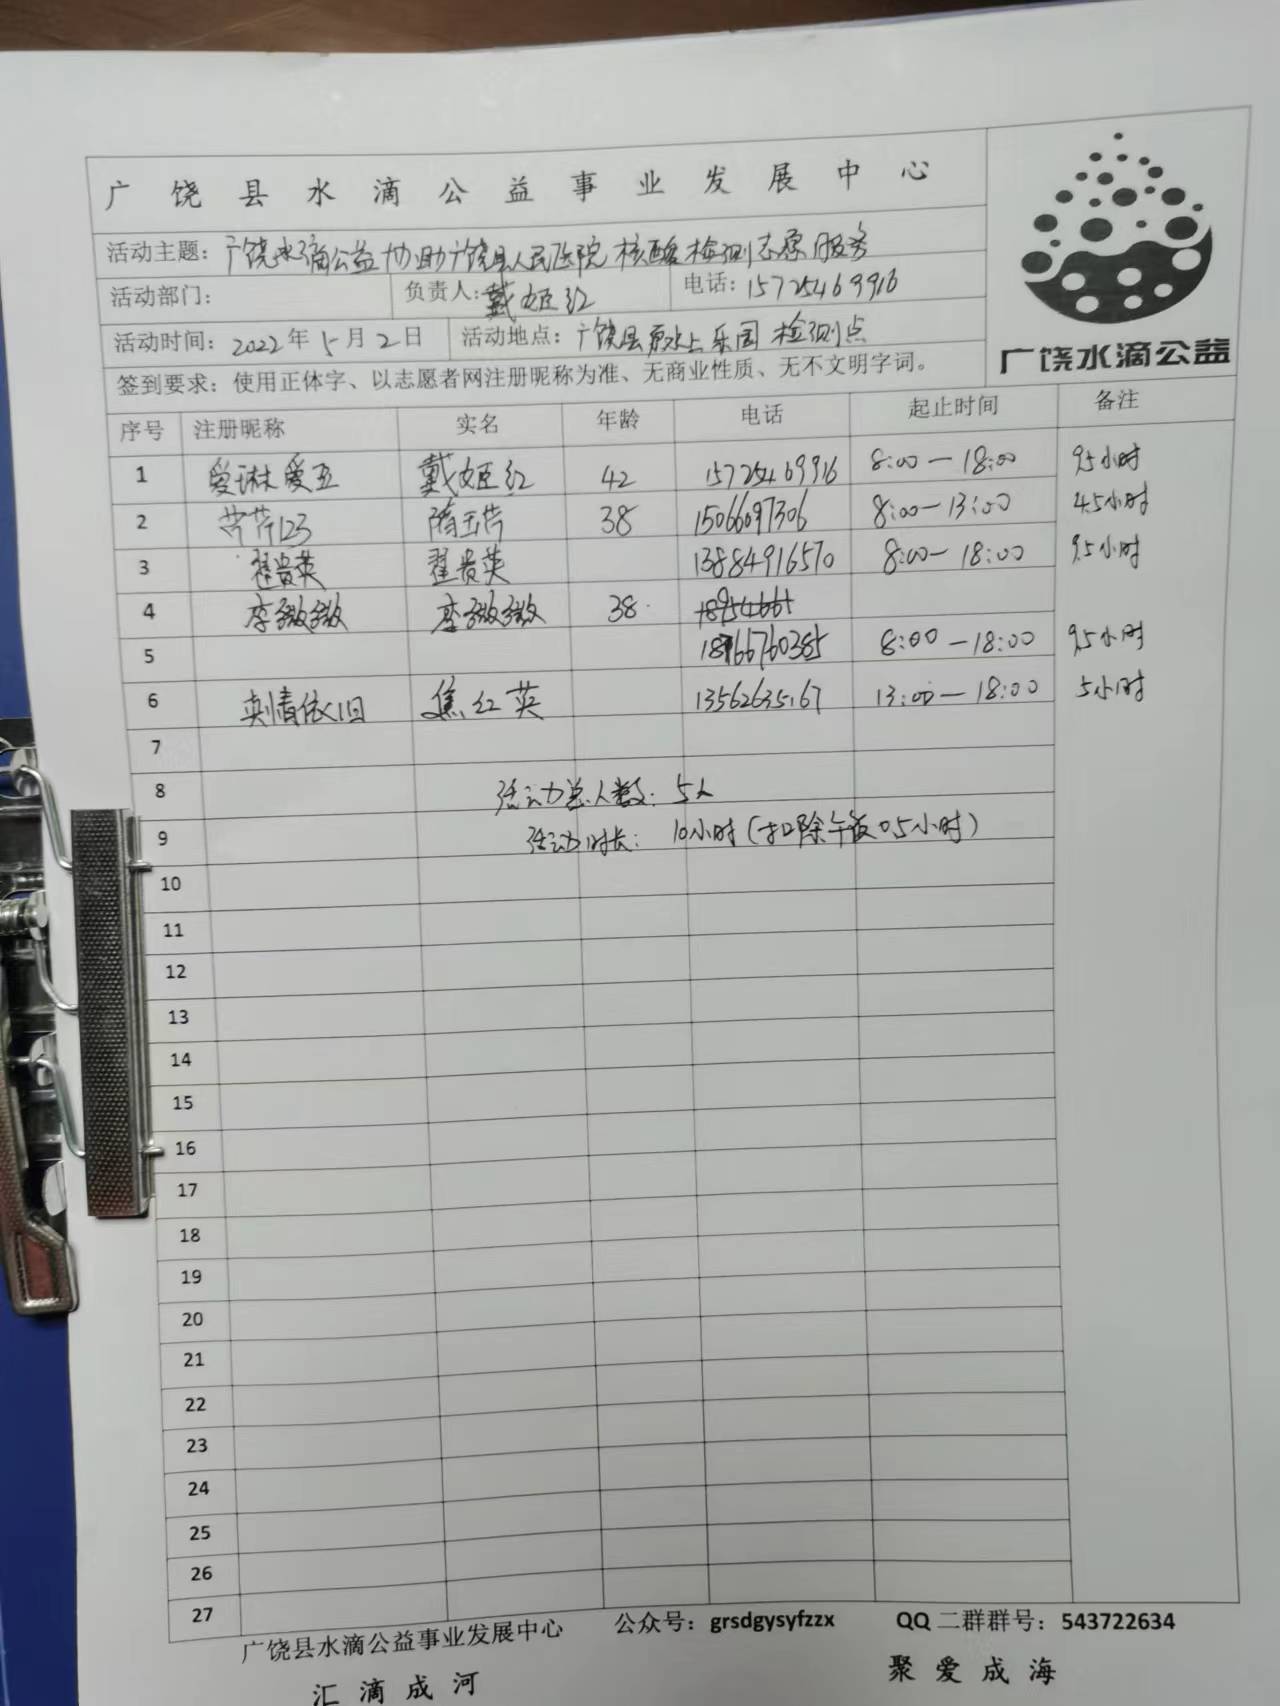 广饶县水滴公益事业发展中心
活动主题：广饶水滴公益协助广饶县人民医院核酸检测志愿服务
活动部门： 负责人：戴姬红 电话：15725469916
活动时间：2022年5月2日 活动地点：广饶县原水上乐园检测点
签到要求：使用正体字、以志愿者网注册昵称为准、无商业性质、无不文明字词。
广饶水滴公益
序号 注册昵称 实名 年龄 电话 起止时间 备注
1 爱琳爱五 戴姬红 42 15725469916 8:00—18:00 9.5小时
2 芹芹123 隋玉芹 38 15066097306 8:00—13:00 4.5小时
3 翟贵英 翟贵英 13884916570 8:00—18:00 9.5小时
4 李微微 李微微 38
5 18766760385 8:00—18:00 9.5小时
6 焦红英 13562635167 13:00—18:00 5小时
7
8 活动总人数：5人
9 活动时长：10小时（扣除午饭0.5小时）
10
11
12
13
14
15
16
17
18
19
20
21
22
23
24
25
26
27
广饶县水滴公益事业发展中心 公众号：grsdgysyfzzx QQ二群群号：543722634
汇滴成河 聚爱成海